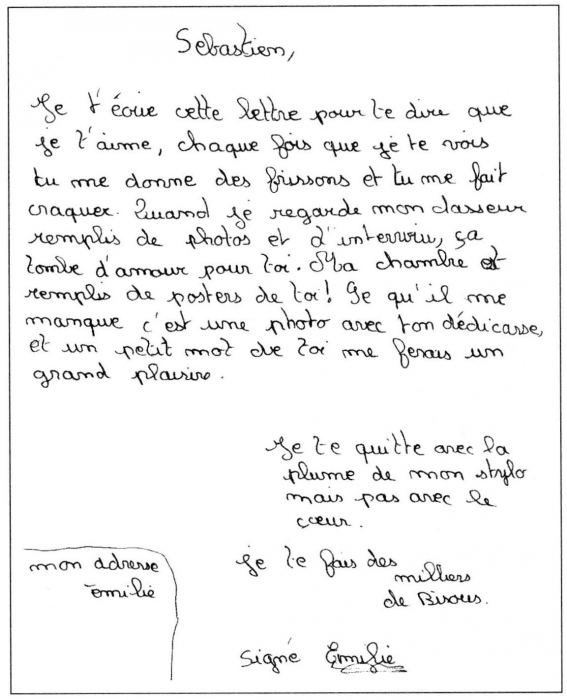 Sebastien,
Je t'écrie cette lettre pour te dire que
je t'aime, chaque fois que je te vois
tu me donne des frissons et tu me fait
craquer. Quand je regarde mon classeur
remplis de photos et d'interwiu, ça
tombe d'amour pour toi. Ma chambre et
remplis de posters de toi! Ce qu'il me
manque c'est une photo avec ton dédicasse,
et un petit mot de toi me ferais un
grand plaisire.
Je te quitte avec la
plume de mon stylo
mais pas avec le
cœur.
Je te fais des
milliers
de Bisous.
mon adresse
Emilie
Signé Emilie